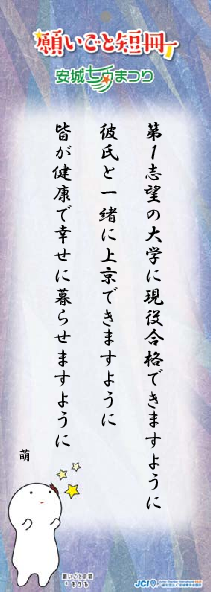 願いごと短冊
安城七夕まつり
第1志望の大学に現役合格できますように
彼氏と一緒に上京できますように
皆が健康で幸せに暮らせますように
萌
JCI